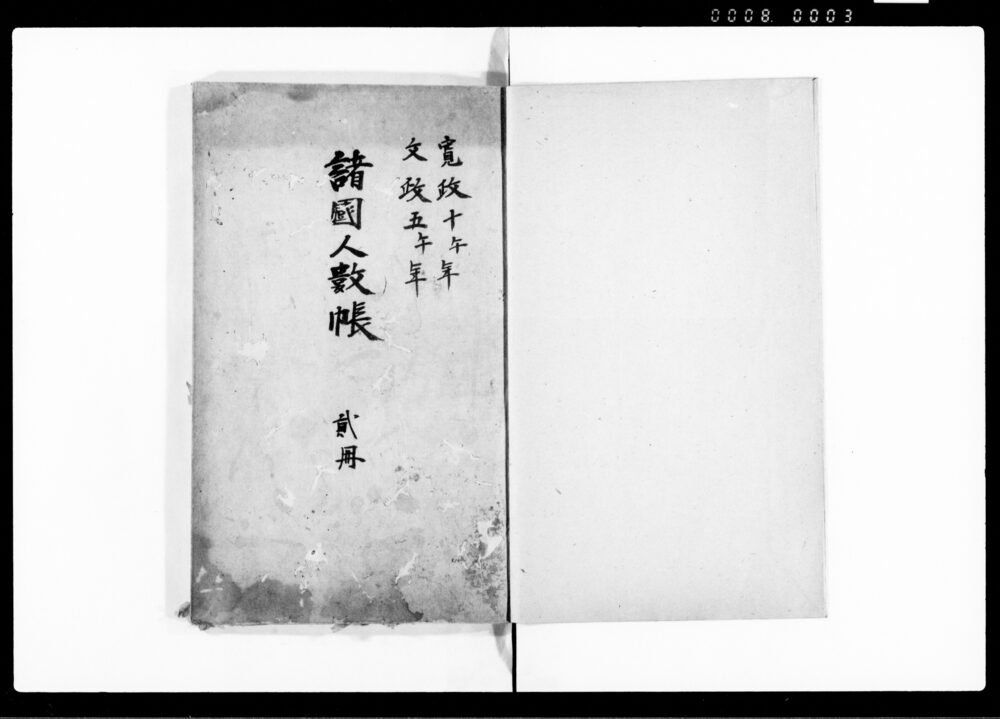 0008 0003
寛政十午年
文政五午年
諸國人數帳
貳冊